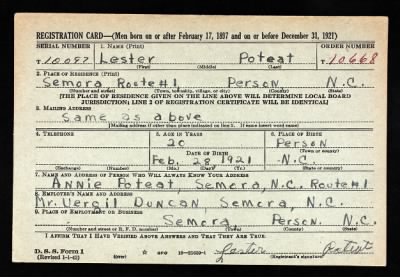 REGISTRATION CARD—(Men born on or after February 17, 1897 and on or before December 31, 1921)
SERIAL NUMBER 1. NAME (Print) ORDER NUMBER
T 10097 Lester Poteat T 10668
(First) (Middle) (Last)
2. PLACE OF RESIDENCE (Print)
Semora Route #1 Person N.C.
(Number and street) (Town, township, village, or city) (County) (State)
[THE PLACE OF RESIDENCE GIVEN ON THE LINE ABOVE WILL DETERMINE LOCAL BOARD
JURISDICTION; LINE 2 OF REGISTRATION CERTIFICATE WILL BE IDENTICAL]
3. MAILING ADDRESS
Same as above
[Mailing address if other than place indicated on line 2. If same insert word same]
4. TELEPHONE 5. AGE IN YEARS 6. PLACE OF BIRTH
20 Person
DATE OF BIRTH (Town or county)
Feb. 28 1921 N.C.
(Exchange) (Number) (Mo.) (Day) (Yr.) (State or country)
7. NAME AND ADDRESS OF PERSON WHO WILL ALWAYS KNOW YOUR ADDRESS
Annie Poteat, Semora, N.C. Route #1
8. EMPLOYER'S NAME AND ADDRESS
Mr. Vergil Duncan, Semora, N.C.
9. PLACE OF EMPLOYMENT OR BUSINESS
Semora, Person N.C.
(Number and street or R. F. D. number) (Town) (County) (State)
I AFFIRM THAT I HAVE VERIFIED ABOVE ANSWERS AND THAT THEY ARE TRUE.
D. S. S. Form 1
(Revised 1-1-42) (over) Lester
(Registrant's signature)